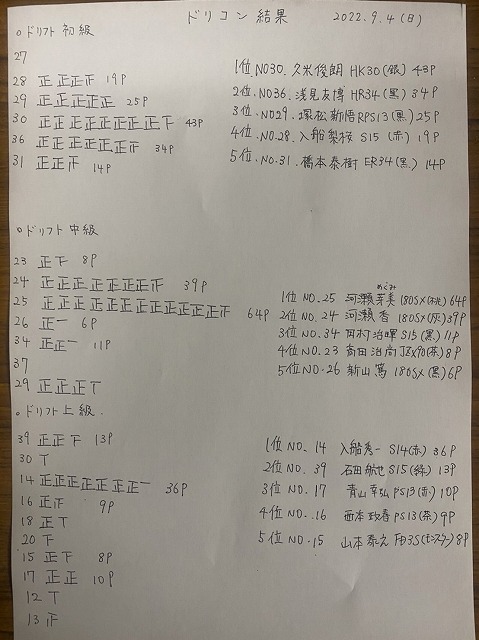 ドリコン 結果 2022.9.4(日)
○ドリフト初級
27
28 正正正正 19P
29 正正正正正 25P
30 正正正正正正正正下 43P
36 正正正正正正正 34P
31 正正正 14P
1位 NO30. 久米俊朗 HK30(銀) 43P
2位. NO36. 浅見友博 HR34(黒) 34P
3位. NO29. 塚松新悟 RPS13(黒) 25P
4位. NO.28. 入船梨桜 S15 (赤) 19P
5位. NO.31. 橋本泰樹 ER34(黒) 14P
○ドリフト中級
23 正下 8P
24 正正正正正正正正 39P
25 正正正正正正正正正正正正正 64P
26 正一 6P
34 正正一 11P
37
29 正正正T
めぐみ
1位 NO.25 河瀬芽美 180SX(桃) 64P
2位 NO.24 河瀬 香 180SX(灰) 39P
3位 NO.34 岡村治暉 S15(黒) 11P
4位 NO.23 高田治尚 JZX90(茶) 8P
5位 NO.26 新山篤 180SX(黒) 6P
○ドリフト上級.
39 正正下 13P
30 T
14 正正正正正正正一 36P
16 正正 9P
18 正T
20 下
15 正下 8P
17 正正 10P
12 T
13 正
1位 NO. 14 入船秀一 S14(赤) 36P
2位 NO. 39 石田航也 S15(緑) 13P
3位 NO. 17 青山幸弘 PS13(赤) 10P
4位 NO..16 西本政春 PS13(茶) 9P
5位 NO.15 山本泰之 FD3S(モンスター) 8P